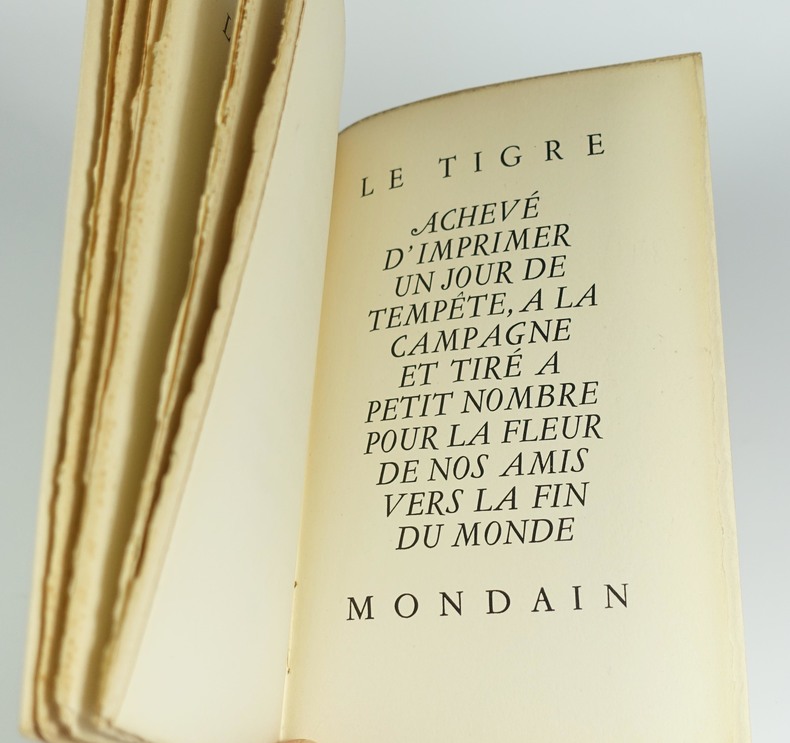 LE TIGRE
ACHEVÉ
D'IMPRIMER
UN JOUR DE
TEMPÊTE, A LA
CAMPAGNE
ET TIRÉ A
PETIT NOMBRE
POUR LA FLEUR
DE NOS AMIS
VERS LA FIN
DU MONDE
MONDAIN